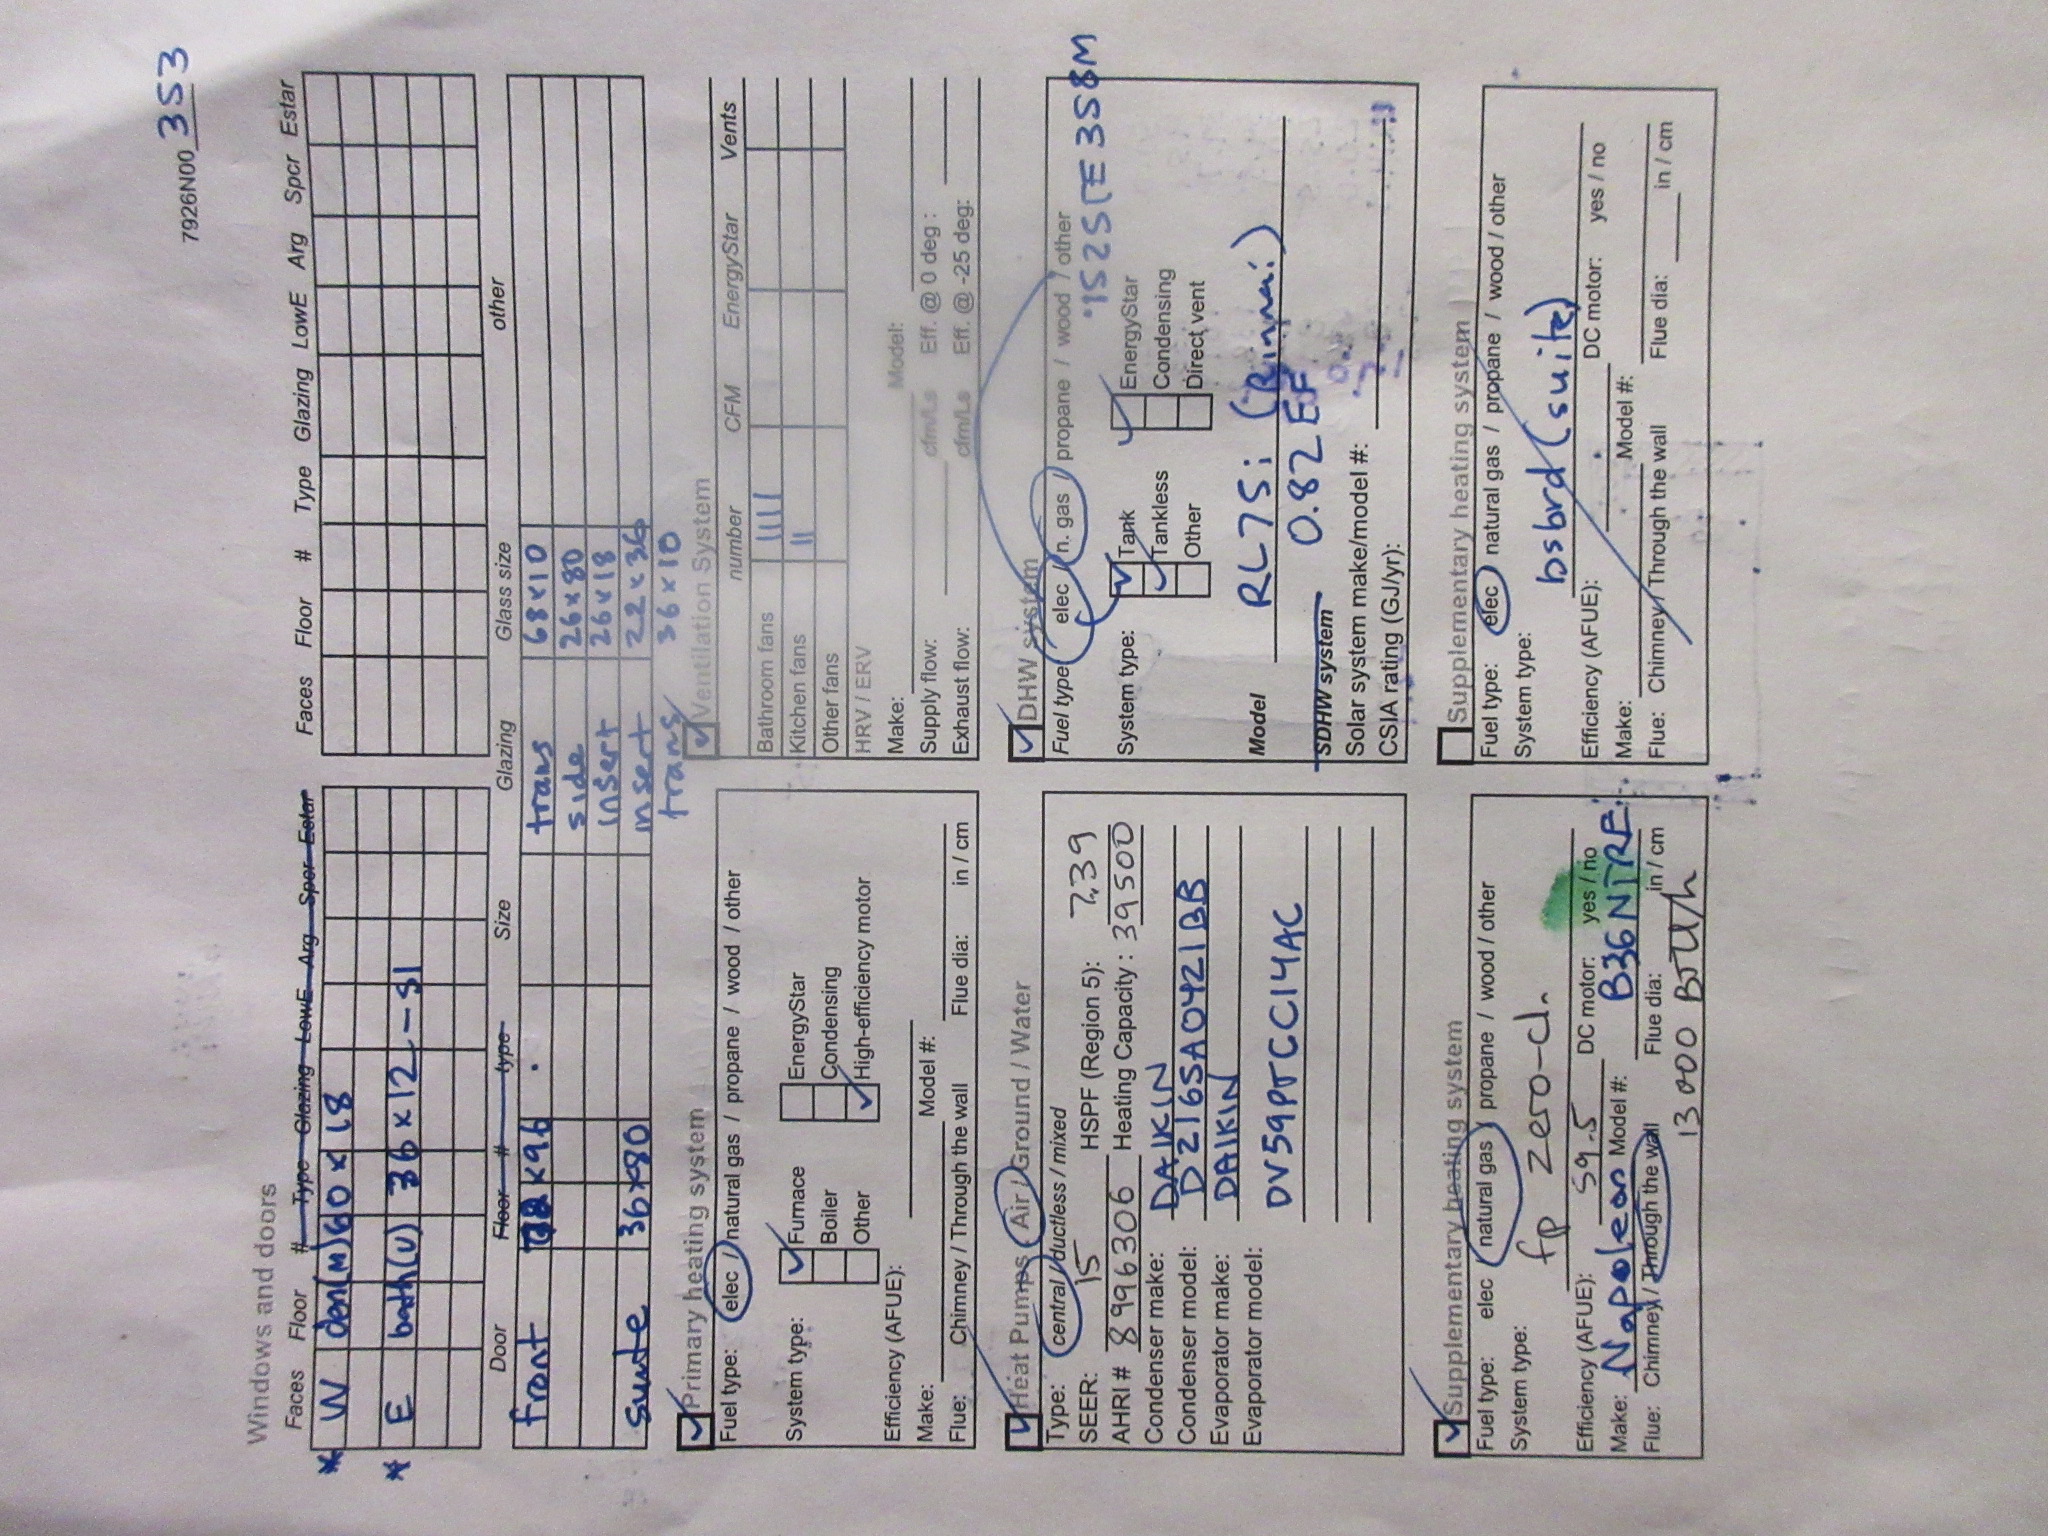 7926N00 353
Windows and doors
Faces Floor # Type Glazing LowE Arg Spcr Estar
* W den(M) 60 x 18
* E bath(U) 36 x 12 - sl
Faces Floor # Type Glazing LowE Arg Spcr Estar
Door Floor # type Size Glazing Glass size other
front x96 trans 68x10
side 26x80
insert 26x18
suite 36x80 insert 22x36
trans 36x10
Primary heating system
Fuel type: elec / natural gas / propane / wood / other
System type: Furnace EnergyStar
Boiler Condensing
Other High-efficiency motor
Efficiency (AFUE):
Make: Model #:
Flue: Chimney / Through the wall Flue dia: in / cm
Ventilation System
number CFM EnergyStar Vents
Bathroom fans IIII
Kitchen fans II
Other fans
HRV / ERV
Make: Model:
Supply flow: cfm/Ls Eff. @ 0 deg :
Exhaust flow: cfm/Ls Eff. @ -25 deg:
Heat Pumps Air / Ground / Water
Type: central / ductless / mixed
SEER: 15 HSPF (Region 5): 7.39
AHRI # 8996306 Heating Capacity : 39500
Condenser make: DAIKIN
Condenser model: DZ16SA0421BB
Evaporator make: DAIKIN
Evaporator model:
DV59PTCC14AC
DHW system
Fuel type elec / n. gas / propane / wood / other
System type: Tank EnergyStar
Tankless Condensing
Other Direct vent
Model RL75i (Rinnai)
SDHW system 0.82 EF
Solar system make/model #:
CSIA rating (GJ/yr):
Supplementary heating system
Fuel type: elec / natural gas / propane / wood / other
System type: fp zero-cl.
Efficiency (AFUE): 59.5 DC motor: yes / no
Make: Napoleon Model #: B36NTRE
Flue: Chimney / Through the wall Flue dia: in / cm
13000 BTU/h
Supplementary heating system
Fuel type: elec / natural gas / propane / wood / other
System type: bsbrd (suite)
Efficiency (AFUE): DC motor: yes / no
Make: Model #:
Flue: Chimney / Through the wall Flue dia: in / cm